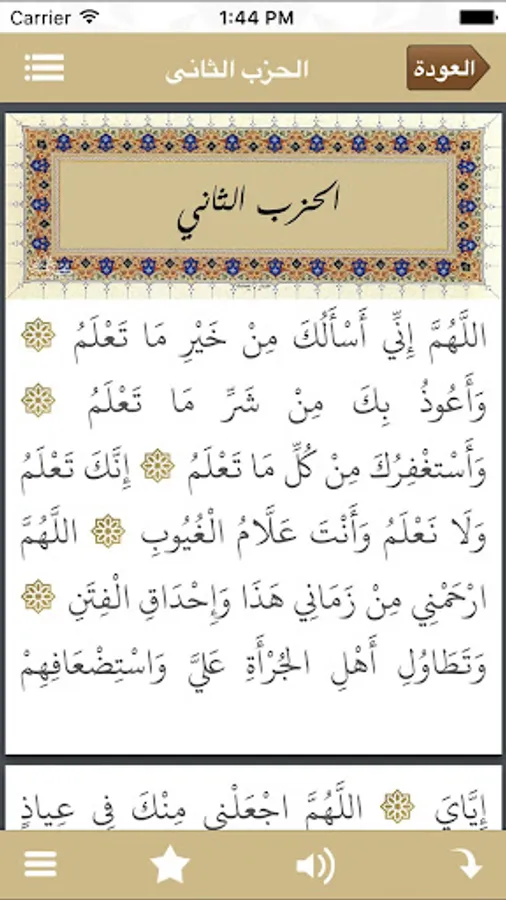 Carrier 1:44 PM
الحزب الثانى
العودة
الحزب الثاني
اللَّهُمَّ إِنِّي أَسْأَلُكَ مِنْ خَيْرِ مَا تَعْلَمُ
وَأَعُوذُ بِكَ مِنْ شَرِّ مَا تَعْلَمُ
وَأَسْتَغْفِرُكَ مِنْ كُلِّ مَا تَعْلَمُ إِنَّكَ تَعْلَمُ
وَلَا نَعْلَمُ وَأَنْتَ عَلَّامُ الْغُيُوبِ اللَّهُمَّ
ارْحَمْنِي مِنْ زَمَانِي هَذَا وَإِحْدَاقِ الْفِتَنِ
وَتَطَاوُلِ أَهْلِ الْجُرْأَةِ عَلَيَّ وَاسْتِضْعَافِهِمْ
إِيَّايَ اللَّهُمَّ اجْعَلْنِي مِنْكَ فِي عِيَاذٍ